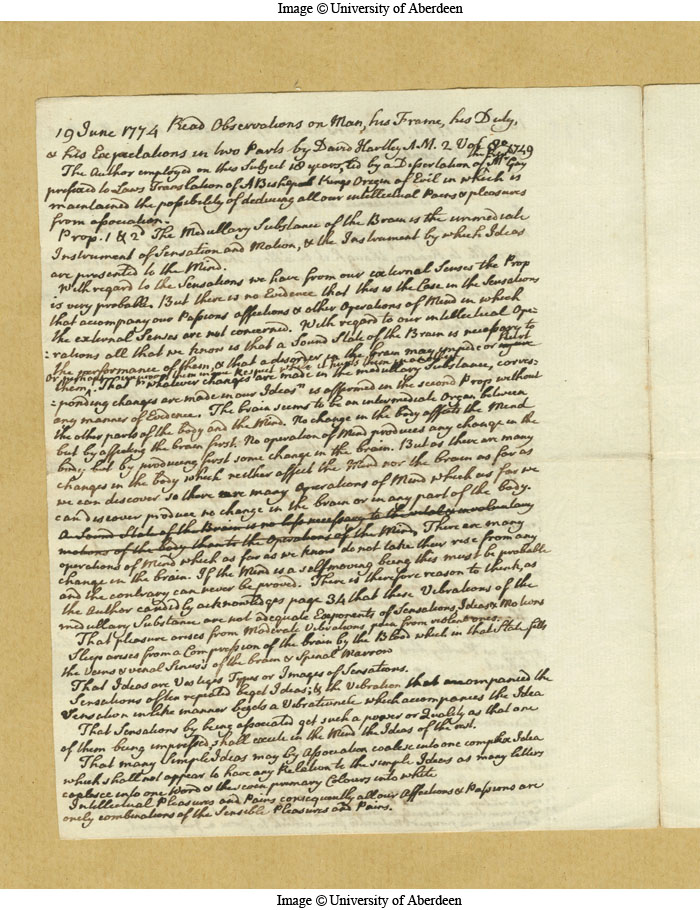 Image © University of Aberdeen
19 June 1774 Read Observations on Man, his Frame, his Duty,
& his Expectations in two Parts by David Hartley A.M. 2 Vol 8º 1749
The Author employed on this Subject 18 years, led by a Dissertation of Mr Gay
prefixed to Laws Translation of ABishop Kings Origin of Evil in which is
maintained the possibility of deducing all our intellectual Pains & pleasures
from association.
Prop. 1 & 2d The Medullary Substance of the Brain is the immediate
Instrument of Sensation and Motion, & the Instrument by which Ideas
are presented to the Mind.
With regard to the Sensations we have from our external Senses the Prop
is very probable. But there is no Evidence that this is the Case in the Sensations
that accompany our Passions affections & other Operations of Mind in which
the external Senses are not concerned. With regard to our intellectual Ope-
=rations all that we know is that a Sound State of the Brain is necessary to
the performance of them, & that a disorder in the brain may impede or hurt
them. That "whatever changes are made in the medullary Substance, corres=
=ponding changes are made in our Ideas" is affirmed in the second Prop without
any manner of Evidence. The brain seems to be an intermediate Organ between
the other parts of the body and the Mind. No change in the body affects the Mind
but by affecting the brain first. No operation of Mind produces any change in the
body but by producing first some change in the brain. But as there are many
changes in the body which neither affect the Mind nor the brain as far as
we can discover so there are many operations of Mind which as far as we
can discover produce no change in the brain or in any part of the body.
A Sound State of the Brain is no less necessary to the vital & involuntary
motions of the body than to the Operations of the Mind, There are many
operations of Mind which as far as we know do not take their rise from any
change in the brain. If the Mind is a self moving being this must be probable
and the contrary can never be proved. There is therefore reason to think, as
the Author candidly acknowledges page 34 that these Vibrations of the
medullary Substance are not adequate Exponents of Sensations, Ideas & Motions
That pleasure arises from Moderate Vibrations pain from violent ones.
Sleep arises from a Compression of the brain by the Blood which in that State fills
the Veins & venal Sinus's of the brain & Spinal Marrow
That Ideas are Vestiges Types or Images of Sensations.
Sensations often repeated beget Ideas; & the Vibration that accompanied the
Sensation in like manner begets a Vibratiuncle which accompanies the Idea
That Sensations by being associated get such a power or Quality as that one
of them being impressed, shall excite in the Mind the Ideas of the rest.
That many Simple Ideas may by Association coalesce into one complex Idea
which shall not appear to have any Relation to the simple Ideas as many letters
coalesce into one Word & the seven primary Colours into white
Intellectual Pleasures and Pains consequently all our Affections & Passions are
onely combinations of the Sensible Pleasures and Pains.
Image © University of Aberdeen